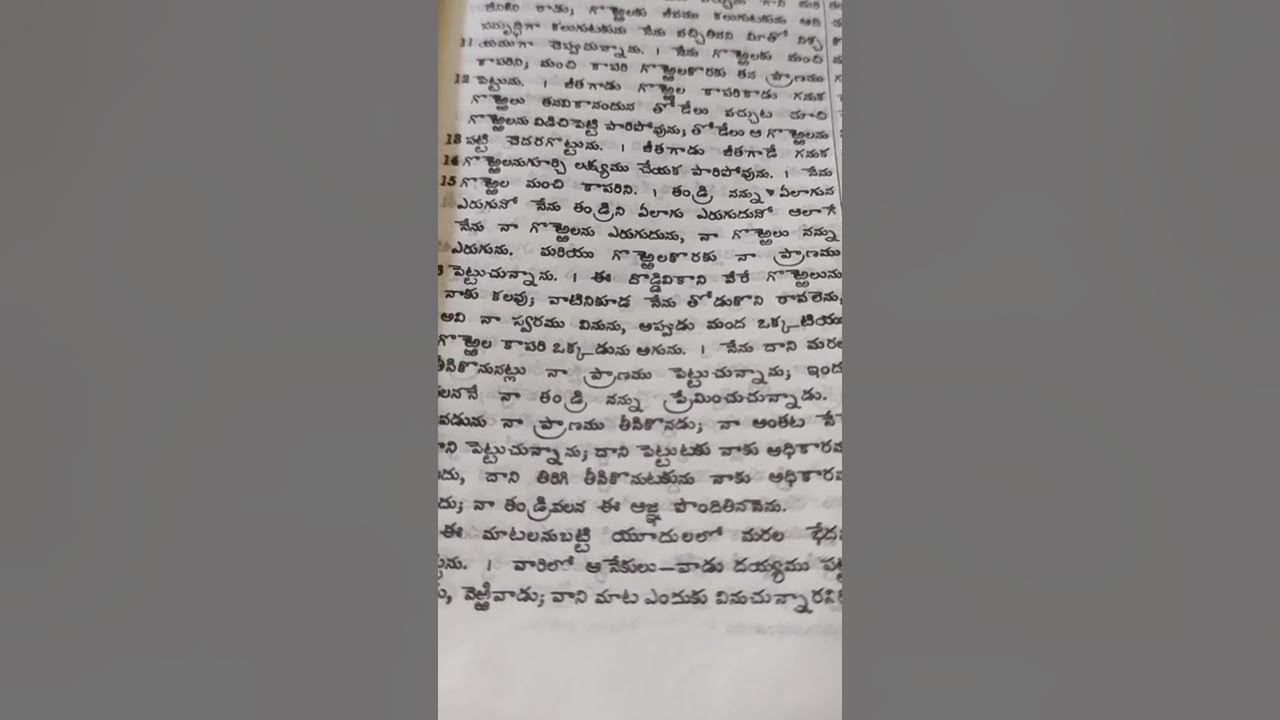 జీవము కలుగుటకును అది
సమృద్ధిగా కలుగుటకును నేను వచ్చితినని మీతో నిశ్చ
11 యముగా చెప్పుచున్నాను. । నేను గొఱ్ఱెలకు మంచి
కాపరిని; మంచి కాపరి గొఱ్ఱెలకొరకు తన ప్రాణము
12 పెట్టును. । జీతగాడు గొఱ్ఱెల కాపరికాడు గనుక
గొఱ్ఱెలు తనవికానందున తోడేలు వచ్చుట చూచి
గొఱ్ఱెలను విడిచిపెట్టి పారిపోవును; తోడేలు ఆ గొఱ్ఱెలను
13 పట్టి చెదరగొట్టును. । జీతగాడు జీతగాడే గనుక
14 గొఱ్ఱెలనుగూర్చి లక్ష్యము చేయక పారిపోవును. । నేను
15 గొఱ్ఱెల మంచి కాపరిని. । తండ్రి నన్ను ఏలాగున
ఎరుగునో నేను తండ్రిని ఏలాగు ఎరుగుదునో ఆలాగే
నేను నా గొఱ్ఱెలను ఎరుగుదును, నా గొఱ్ఱెలు నన్ను
ఎరుగును. మరియు గొఱ్ఱెలకొరకు నా ప్రాణము
పెట్టుచున్నాను. । ఈ దొడ్డివికాని వేరే గొఱ్ఱెలును
నాకు కలవు; వాటినికూడ నేను తోడుకొని రావలెను,
అవి నా స్వరము వినును, అప్పుడు మంద ఒక్కటియు
గొఱ్ఱెల కాపరి ఒక్కడును ఆగును. । నేను దాని మరల
తీసికొనునట్లు నా ప్రాణము పెట్టుచున్నాను; ఇందు
వలననే నా తండ్రి నన్ను ప్రేమించుచున్నాడు.
వడును నా ప్రాణము తీసికొనడు; నా అంతట నే
దాని పెట్టుచున్నాను; దాని పెట్టుటకు నాకు అధికారమ
దు, దాని తిరిగి తీసికొనుటకును నాకు అధికారమ
దు; నా తండ్రివలన ఈ ఆజ్ఞ పొందితిననెను.
ఈ మాటలనుబట్టి యూదులలో మరల భేద
ను. । వారిలో అనేకులు—వాడు దయ్యము పట్టి
వెఱ్ఱివాడు; వాని మాట ఎందుకు వినుచున్నారనిరి